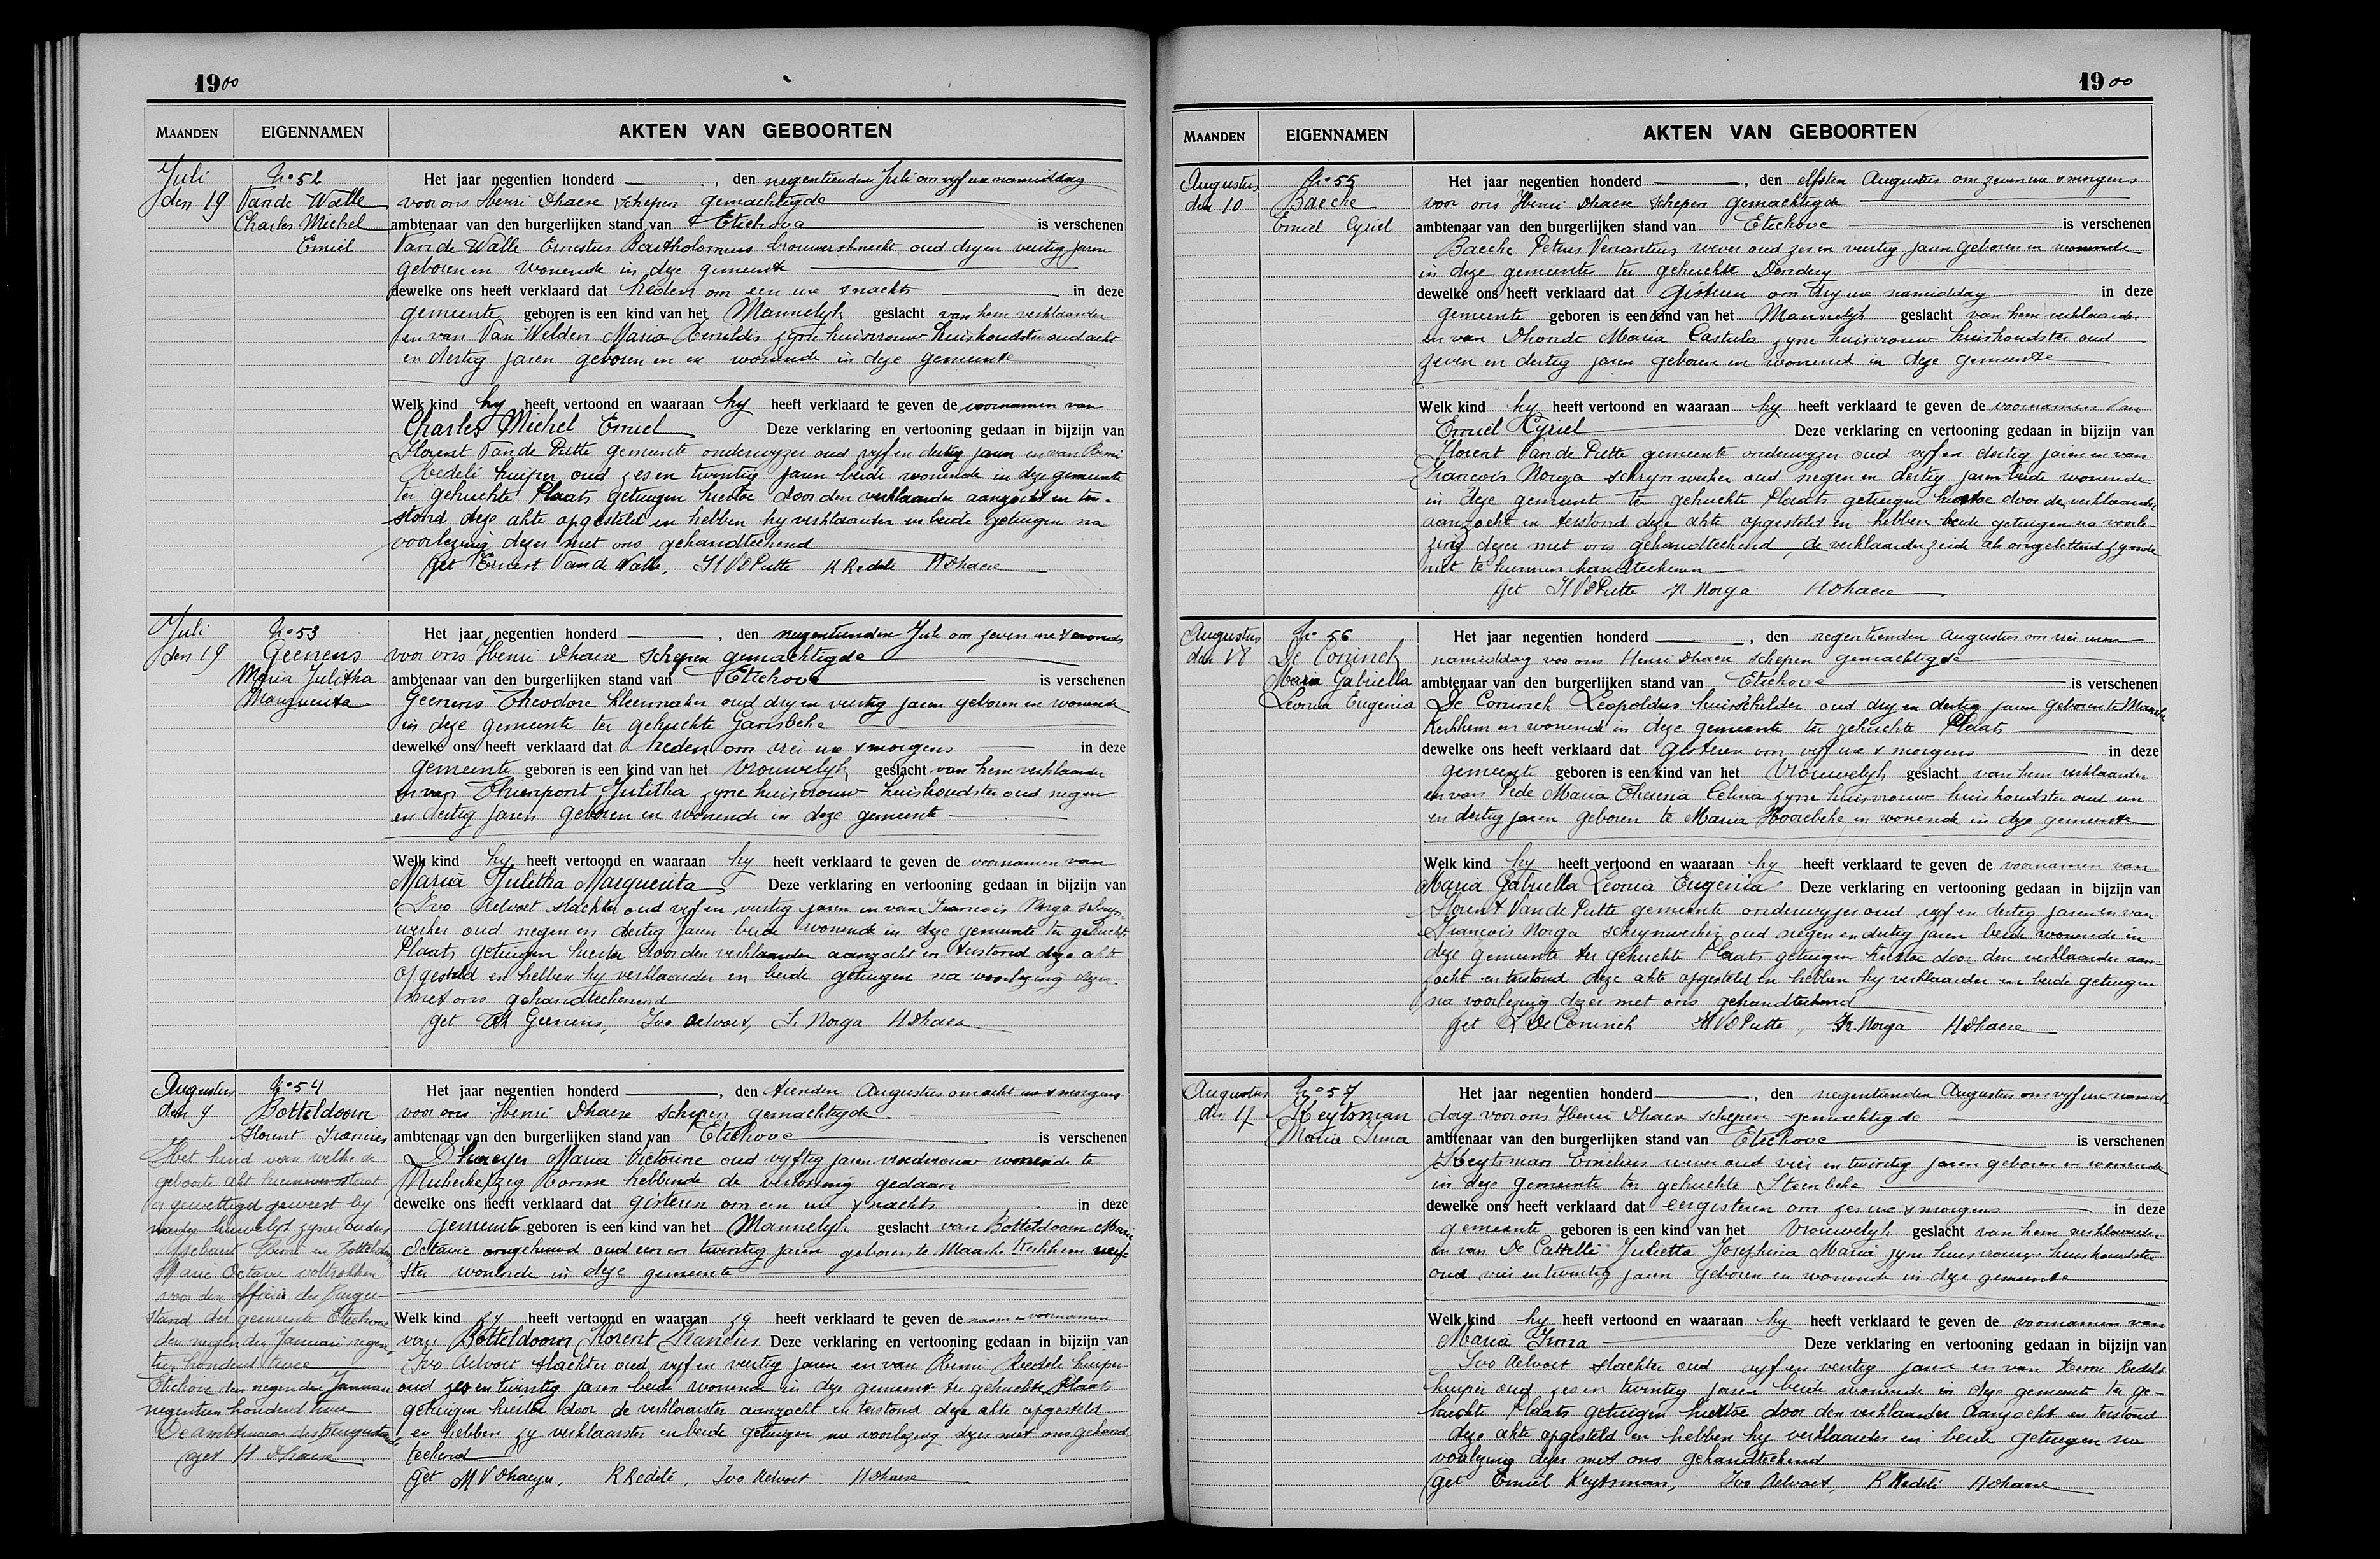 1900
MAANDEN EIGENNAMEN AKTEN VAN GEBOORTEN
Juli
den 19
No 52
Van de Walle
Charles Michel
Emiel
Het jaar negentien honderd , den negentienden Juli om vyf ure namiddag
voor ons Henri Dhaese Schepen gemachtigde
ambtenaar van den burgerlijken stand van Etichove is verschenen
Van de Walle Ernestus Bartholomeus brouwersknecht oud dry en veertig jaren
geboren en wonende in deze gemeente
dewelke ons heeft verklaard dat heden om een ure snachts in deze
gemeente geboren is een kind van het Mannelyk geslacht van hem verklaarder
en van Van Welden Maria Renildis zyne huisvrouw huishoudster oud acht
en dertig jaren geboren en wonende in deze gemeente
Welk kind hy heeft vertoond en waaraan hy heeft verklaard te geven de voornamen van
Charles Michel Emiel Deze verklaring en vertooning gedaan in bijzijn van
Florent Van de Putte gemeente onderwyzer oud vyf en dertig jaren en van Remi
Redelé kuiper oud zes en twintig jaren beide wonende in deze gemeente
ter gehuchte Plaats getuigen hiertoe door den verklaarder aanzocht en ter-
stond deze akte opgesteld en hebben hy verklaarder en beide getuigen na
voorlezing dezer met ons gehandteekend
get Ernest Van de Walle, Fl VDPutte R Redelé HDhaese
Juli
den 19
No 53
Geenens
Maria Julitha
Marguerita
Het jaar negentien honderd , den negentienden Juli om zeven ure s avonds
voor ons Henri Dhaese Schepen gemachtigde
ambtenaar van den burgerlijken stand van Etichove is verschenen
Geenens Theodore kleermaker oud dry en veertig jaren geboren en wonende
in deze gemeente ter gehuchte Gansbeke
dewelke ons heeft verklaard dat heden om vier ure s morgens in deze
gemeente geboren is een kind van het Vrouwelyk geslacht van hem verklaarder
en van Thienpont Julitha zyne huisvrouw huishoudster oud negen
en dertig jaren geboren en wonende in deze gemeente
Welk kind hy heeft vertoond en waaraan hy heeft verklaard te geven de voornamen van
Maria Julitha Marguerita Deze verklaring en vertooning gedaan in bijzijn van
Ivo Aelvoet slachter oud vyf en veertig jaren en van François Norga schryn-
werker oud negen en dertig jaren beide wonende in deze gemeente ter gehuchte
Plaats getuigen hiertoe door den verklaarder aanzocht en terstond deze akte
opgesteld en hebben hy verklaarder en beide getuigen na voorlezing dezer
met ons gehandteekend
get Th Geenens, Ivo Aelvoet, Fr Norga HDhaese
Augustus
den 9
No 54
Botteldoorn
Florent Francies
Het kind van welke de
geboorte akt hiernevenstaat
is gewettigd geweest by
huwelyk zyner ouders
Henri en Botteldoorn
Marie Octavie voltrokken
voor den officier des Burger-
stand der gemeente Etichove
den negenden Januari negen-
tien honderd twee
Etichove den negenden Januari
negentien honderd twee
De ambtenaar des Burgerstands
get H Dhaese
Het jaar negentien honderd , den tienden Augustus om acht ure s morgens
voor ons Henri Dhaese Schepen gemachtigde
ambtenaar van den burgerlijken stand van Etichove is verschenen
Dhaeyer Maria Victorine oud vyftig jaren vroedvrouw wonende te
hebbende de verlossing gedaan
dewelke ons heeft verklaard dat gisteren om een ure s nachts in deze
gemeente geboren is een kind van het Mannelyk geslacht van Botteldoorn Marie
Octavie ongehuwd oud een en twintig jaren geboren te Maarke Kerkhem
wonende in deze gemeente
Welk kind zy heeft vertoond en waaraan zy heeft verklaard te geven de naam en voornamen
van Botteldoorn Florent Francies Deze verklaring en vertooning gedaan in bijzijn van
Ivo Aelvoet slachter oud vyf en veertig jaren en van Remi Redelé kuiper
oud zes en twintig jaren beide wonende in deze gemeente ter gehuchte Plaats
getuigen hiertoe door de verklaarster aanzocht en terstond deze akte opgesteld
en hebben zy verklaarster en beide getuigen na voorlezing dezer met ons gehand
teekend
get M V Dhaeyer, R Redelé, Ivo Aelvoet HDhaese
1900
MAANDEN EIGENNAMEN AKTEN VAN GEBOORTEN
Augustus
den 10
No 55
Baecke
Emiel Cyriel
Het jaar negentien honderd , den elfsten Augustus om zeven ure s morgens
voor ons Henri Dhaese Schepen gemachtigde
ambtenaar van den burgerlijken stand van Etichove is verschenen
Baecke Petrus Venantius wever oud zes en veertig jaren geboren en wonende
in deze gemeente ter gehuchte Donderij
dewelke ons heeft verklaard dat gisteren om dry ure namiddag in deze
gemeente geboren is een kind van het Mannelyk geslacht van hem verklaarder
en van Dhondt Maria Castula zyne huisvrouw huishoudster oud
zeven en dertig jaren geboren en wonende in deze gemeente
Welk kind hy heeft vertoond en waaraan hy heeft verklaard te geven de voornamen van
Emiel Cyriel Deze verklaring en vertooning gedaan in bijzijn van
Florent Van de Putte gemeente onderwyzer oud vyf en dertig jaren en van
François Norga schrynwerker oud negen en dertig jaren beide wonende
in deze gemeente ter gehuchte Plaats getuigen hiertoe door den verklaarder
aanzocht en terstond deze akte opgesteld en hebben beide getuigen na voorle-
zing dezer met ons gehandteekend, de verklaarder zeide als ongeletterd zynde
niet te kunnen handteekenen
get Fl VDPutte Fr Norga HDhaese
Augustus
den 18
No 56
De Coninck
Maria Gabriella
Leonia Eugenia
Het jaar negentien honderd , den negentienden Augustus om vier uren
namiddag voor ons Henri Dhaese schepen gemachtigde
ambtenaar van den burgerlijken stand van Etichove is verschenen
De Coninck Leopoldus huisschilder oud dry en dertig jaren geboren te Maarke
Kerkhem en wonende in deze gemeente ter gehuchte Plaats
dewelke ons heeft verklaard dat gisteren om vyf ure s morgens in deze
gemeente geboren is een kind van het Vrouwelyk geslacht van hem verklaarder
en van Pede Maria Theresia Celina zyne huisvrouw huishoudster oud een
en dertig jaren geboren te Maria Hoorebeke en wonende in deze gemeente
Welk kind hy heeft vertoond en waaraan hy heeft verklaard te geven de voornamen van
Maria Gabriella Leonia Eugenia Deze verklaring en vertooning gedaan in bijzijn van
Florent Van de Putte gemeente onderwyzer oud vyf en dertig jaren en van
François Norga schrynwerker oud negen en dertig jaren beide wonende in
deze gemeente ter gehuchte Plaats getuigen hiertoe door den verklaarder aan-
zocht en terstond deze akte opgesteld en hebben hy verklaarder en beide getuigen
na voorlezing dezer met ons gehandteekend
get L De Coninck Fl VDPutte, Fr. Norga HDhaese
Augustus
den 17
No 57
Keytsman
Maria Irma
Het jaar negentien honderd , den negentienden Augustus om vyf ure namid-
dag voor ons Henri Dhaese schepen gemachtigde
ambtenaar van den burgerlijken stand van Etichove is verschenen
Keytsman Emelius wever oud vier en twintig jaren geboren en wonende
in deze gemeente ter gehuchte Steenbeke
dewelke ons heeft verklaard dat eergisteren om zes ure s morgens in deze
gemeente geboren is een kind van het Vrouwelyk geslacht van hem verklaarder
en van De Julietta Josephina Maria zyne huisvrouw huishoudster
oud vier en twintig jaren geboren en wonende in deze gemeente
Welk kind hy heeft vertoond en waaraan hy heeft verklaard te geven de voornamen van
Maria Irma Deze verklaring en vertooning gedaan in bijzijn van
Ivo Aelvoet slachter oud vyf en veertig jaren en van Remi Redelé
kuiper oud zes en twintig jaren beide wonende in deze gemeente ter ge-
huchte Plaats getuigen hiertoe door den verklaarder aanzocht en terstond
deze akte opgesteld en hebben hy verklaarder en beide getuigen na
voorlezing dezer met ons gehandteekend
get Emiel Keytsman, Ivo Aelvoet, R Redelé HDhaese